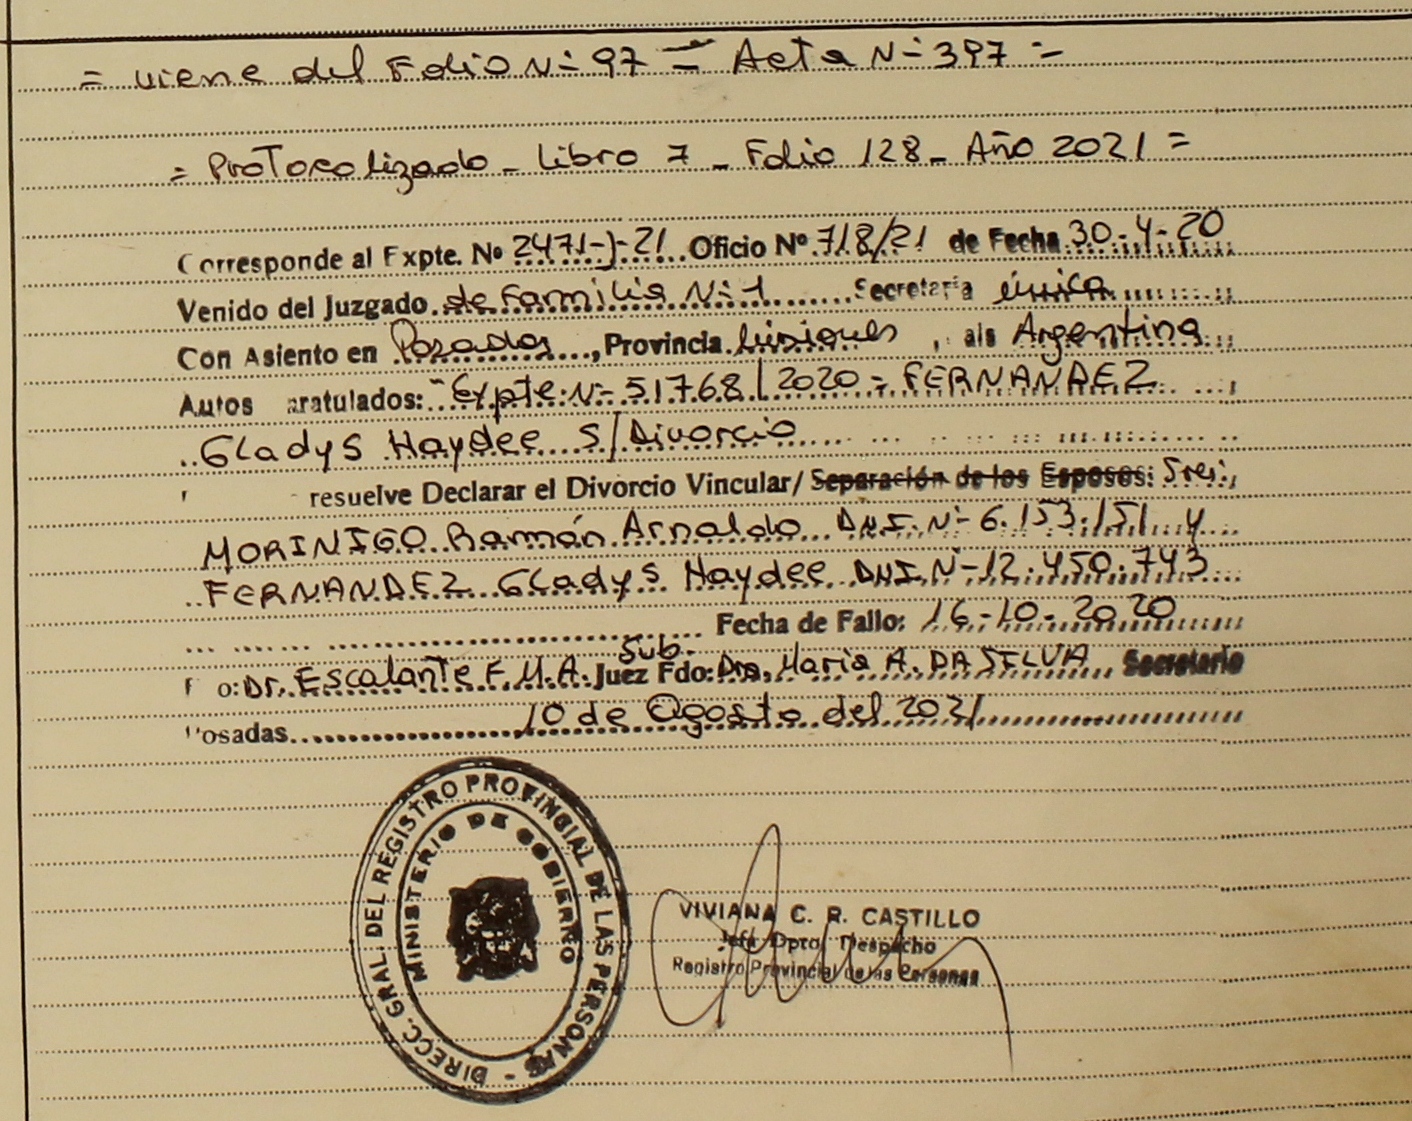 = viene del Folio N- 97 = Acta N- 397 =
= Protocolizado - Libro 7 - Folio 128 - Año 2021 =
Corresponde al Expte. Nº 2471-J-21 Oficio Nº 718/21 de Fecha 30-4-20
Venido del Juzgado de Familia N- 1 Secretaría única
Con Asiento en Posadas, Provincia Misiones, aís Argentina
Autos aratulados: "Expte N- 51768/2020 - FERNANDEZ
Gladys Haydee S/Divorcio
resuelve Declarar el Divorcio Vincular/ Separación de los Esposos: Sres.
MORINIGO Ramón Arnaldo DNI. N- 6.153.151 y
FERNANDEZ Gladys Haydee DNI. N- 12.450.743
Fecha de Fallo: 16-10-2020
o: Dr. Escalante F. M. A. Juez Sub. Fdo: Dra. Maria A. DA SILVA Secretario
osadas 10 de Agosto del 2021
DIRECC. GRAL. DEL REGISTRO PROVINCIAL DE LAS PERSONAS -
MINISTERIO DE GOBIERNO
VIVIANA C. R. CASTILLO
Jefa Dpto. Despacho
Registro Provincial de las Personas